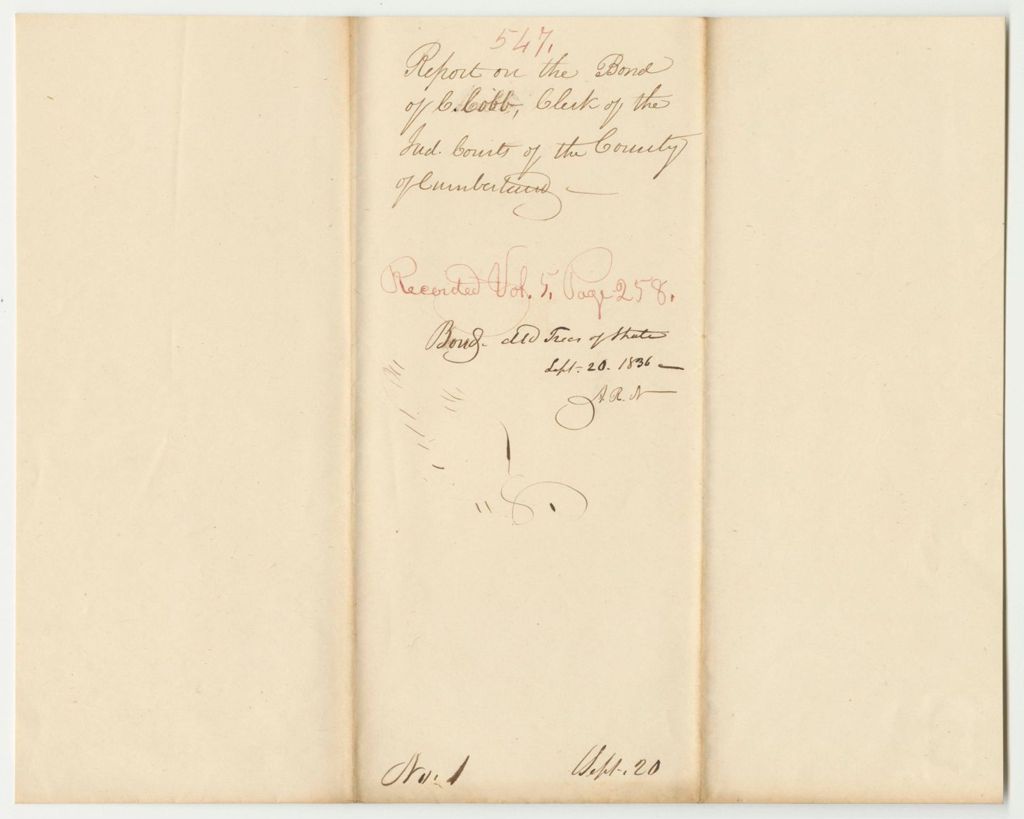 547.
Report on the Bond
of C. Cobb, Clerk of the
Jud. Courts of the County
of Cumberland —
Recorded Vol. 5. Page 258.
Bond. dld Treas of State
Sept. 20. 1836 —
A. R. N
No. 1 Sept. 20